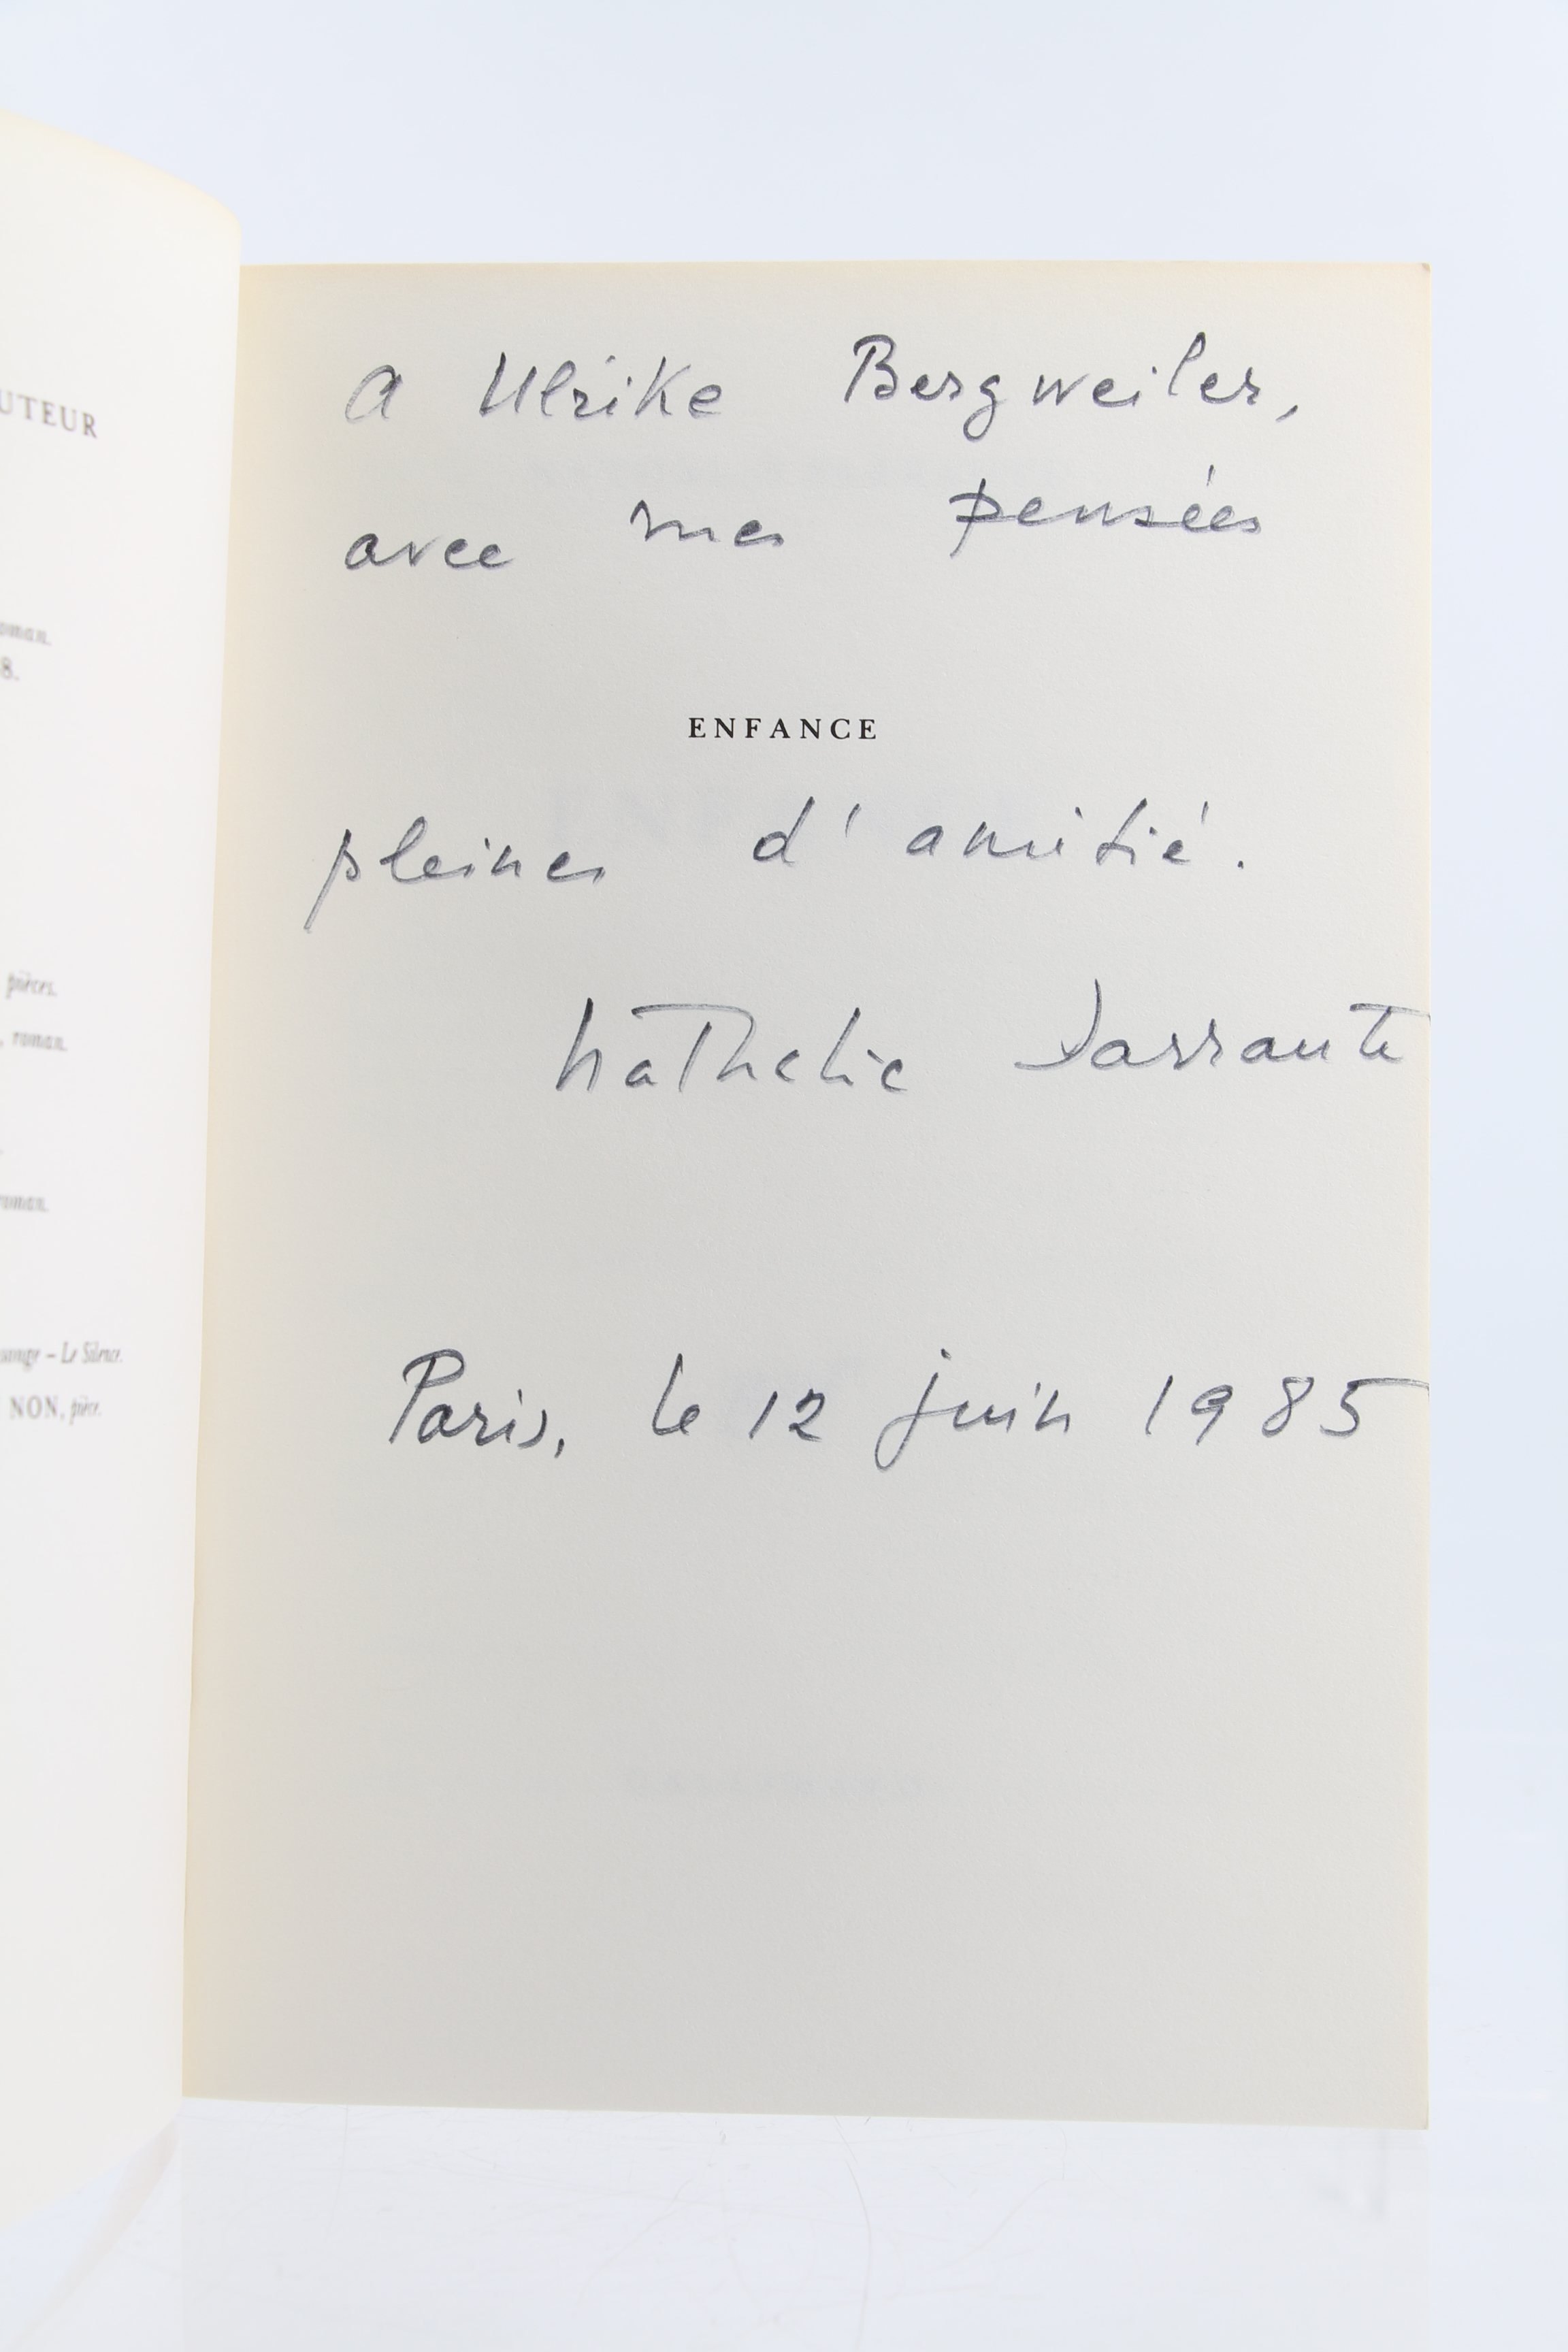 UTEUR
oman.
8.
pièces.
, roman.
roman.
– Le Silence.
NON, pièce.
A Ulrike Bergweiler,
avec mes pensées
ENFANCE
pleines d'amitié.
Nathalie Sarraute
Paris, le 12 juin 1985